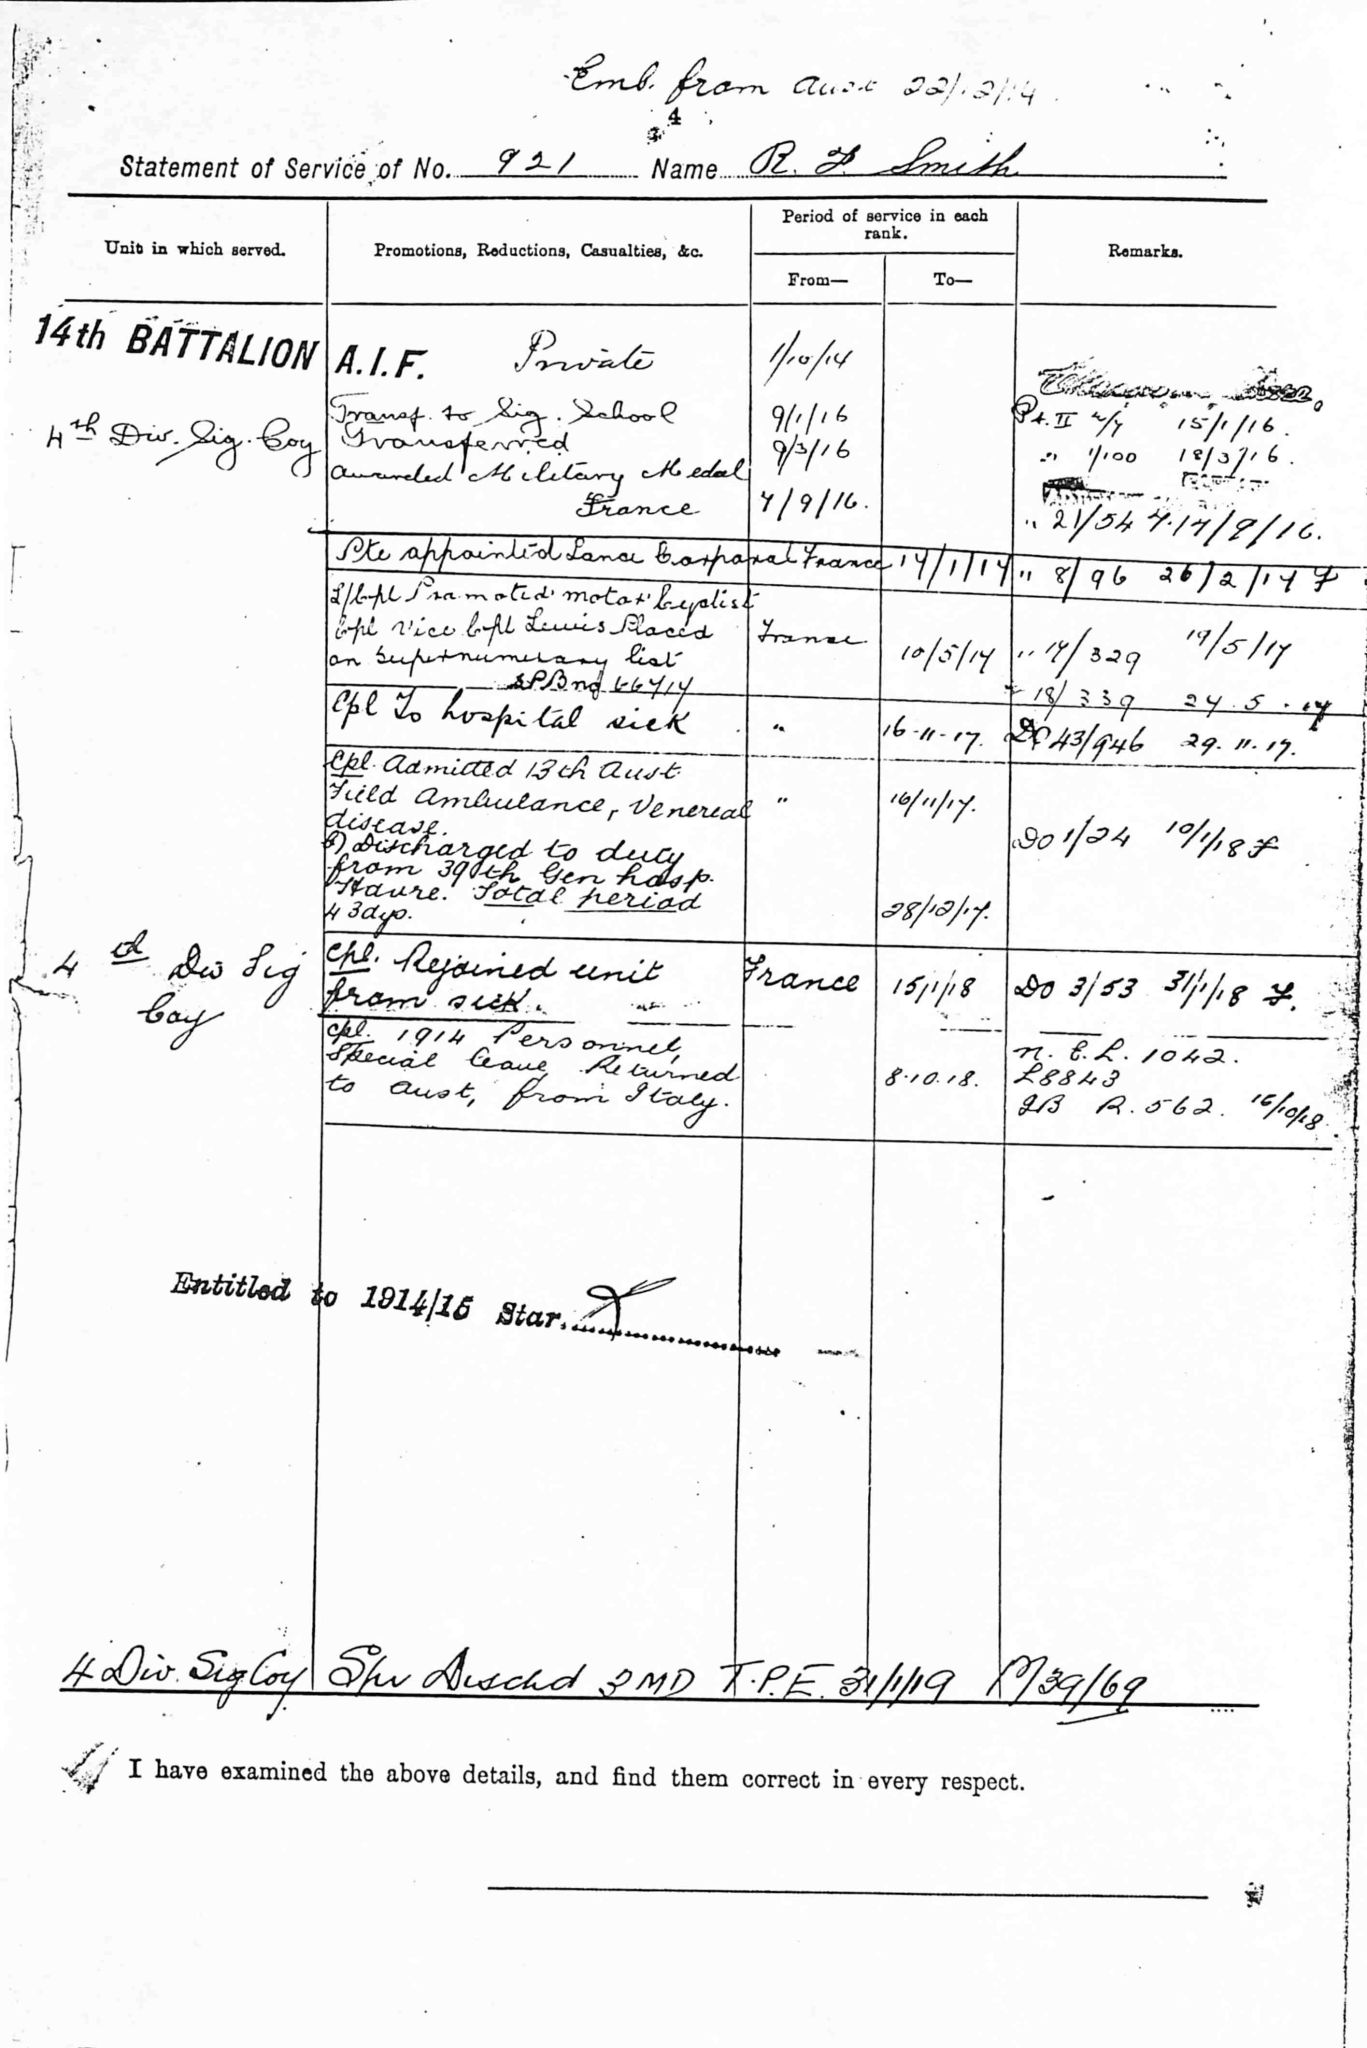 Emb. from Aust 22/12/14
4
Statement of Service of No. 921 Name R. F. Smith
Unit in which served.
Promotions, Reductions, Casualties, &c.
Period of service in each rank.
From—
To—
Remarks.
14th BATTALION A.I.F. Private 1/10/14
Transf. to Sig. School 9/1/16 Pt. II 15/1/16.
4th Div. Sig. Coy Transferred 9/3/16 " 1/100 18/3/16.
Awarded Military Medal
France 7/9/16. " 21/54 17/9/16.
Pte appointed Lance Corporal France 17/1/17 " 8/96 26/2/17 F
L/Cpl Promoted motor Cyclist
Cpl vice Cpl Lewis Placed France
on Supernumerary list 10/5/17 " 17/329 19/5/17
18/339 24.5.17
Cpl To hospital sick " 16-11-17. DO 43/946 29.11.17.
Cpl. Admitted 13th Aust
Field Ambulance, Venereal " 16/11/17.
disease. DO 1/24 10/1/18 F
Discharged to duty
from 39th Gen hosp.
Havre. Total period 28/12/17.
43dys.
4 Div Sig Cpl. Rejoined unit France 15/1/18 DO 3/53 31/1/18 F.
Coy from sick.
Cpl. 1914 Personnel, N.E.L. 1042.
Special leave Returned 8.10.18. L8843
to Aust, from Italy. R. 562. 16/10/18
Entitled to 1914/15 Star.
4 Div. Sig Coy Spr Dischd 3 MD T.P.E. 31/1/19 39/69
I have examined the above details, and find them correct in every respect.